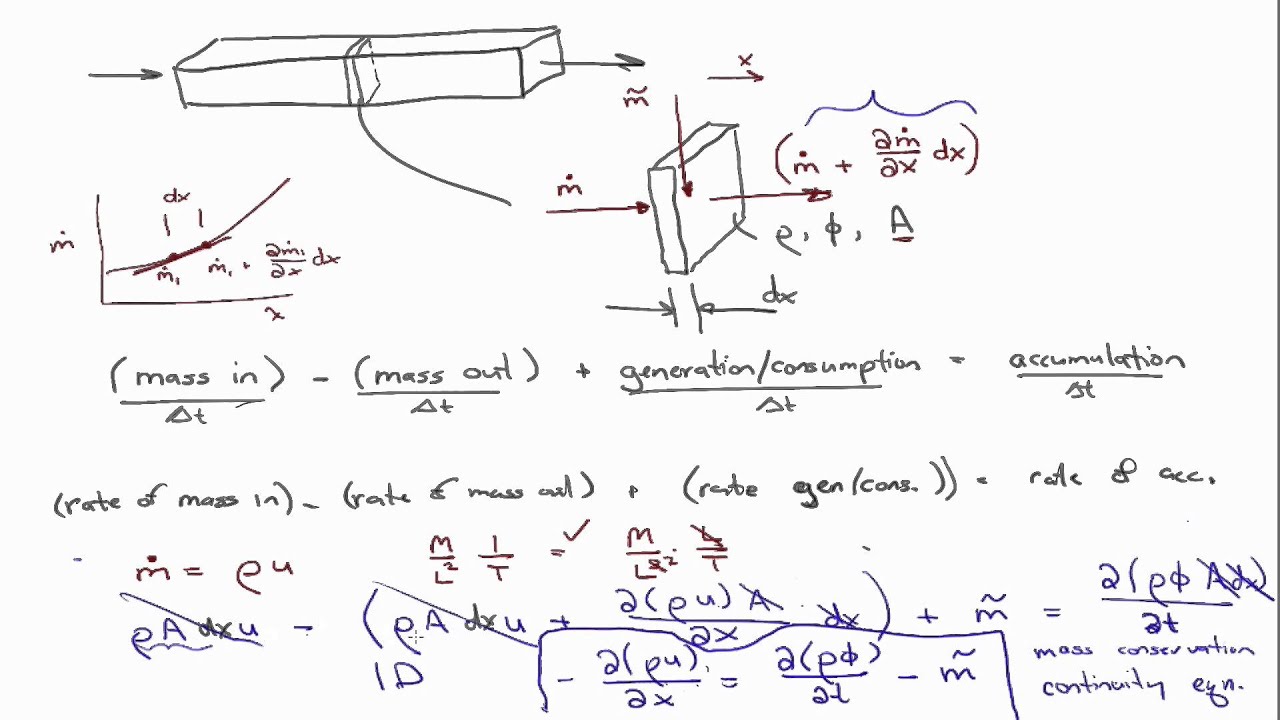 x
m̃
(ṁ + ∂ṁ/∂x dx)
ṁ
ρ, ϕ, A
dx
dx
ṁ
ṁ₁
ṁ₁ + ∂ṁ₁/∂x dx
x
(mass in)/Δt - (mass out)/Δt + generation/consumption/Δt = accumulation/Δt
(rate of mass in) - (rate of mass out) + (rate gen/cons.)) = rate of acc.
ṁ = ρu
M/L² 1/T = ✓ M/L³² L/T
ρA dx u - (ρA dx u + ∂(ρu)A/∂x dx) + m̃ = ∂(ρϕ A dx)/∂t
1D
-∂(ρu)/∂x = ∂(ρϕ)/∂t - m̃
mass conservation
continuity eqn.